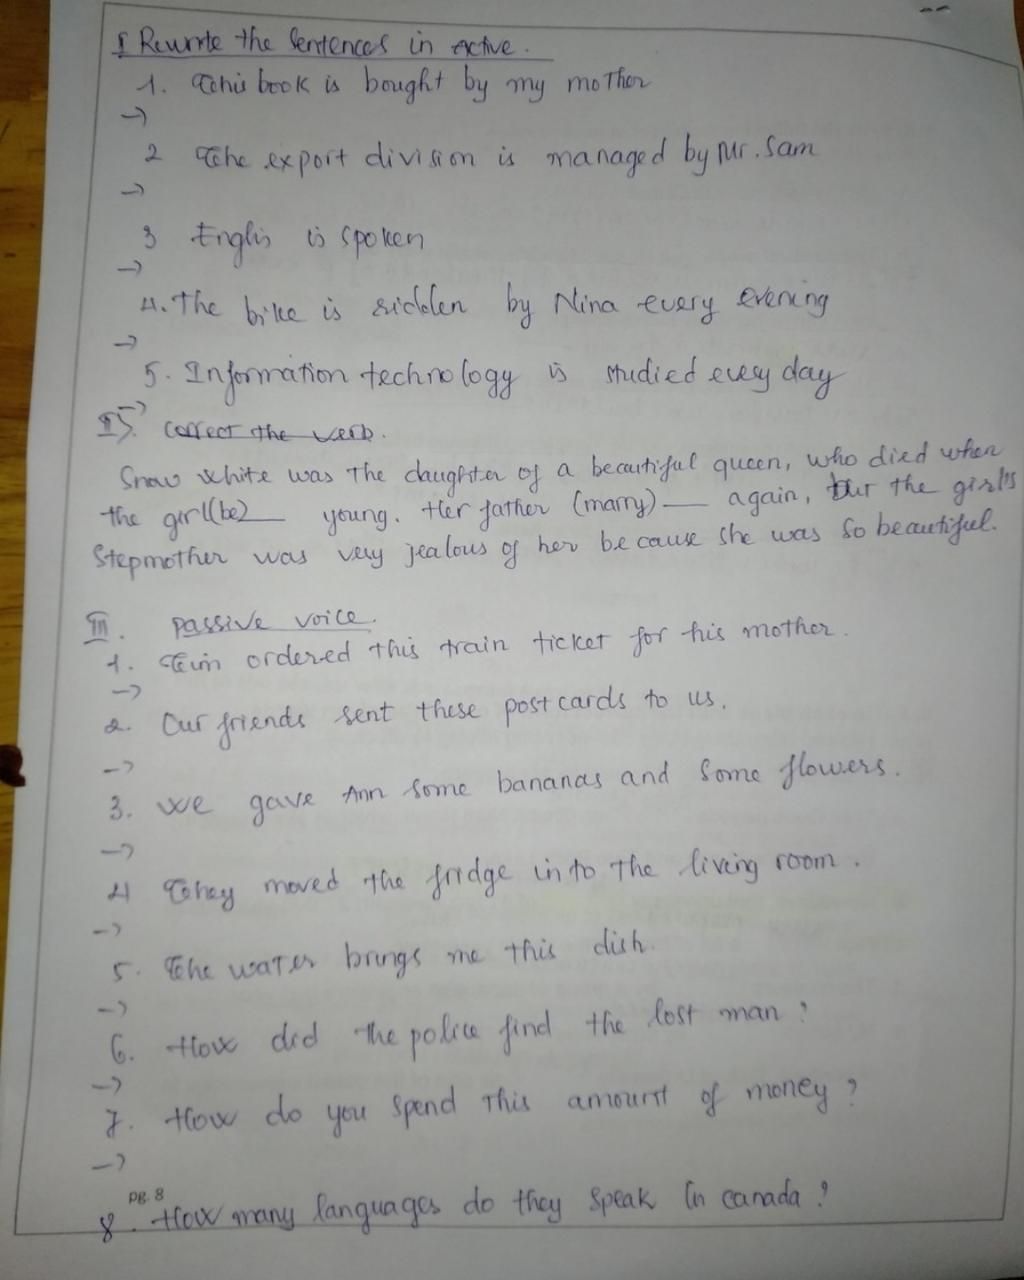 I Rewrite the Sentences in active.
1. This book is bought by my mother
->
2 The export division is managed by Mr. Sam
->
3 Englis is spoken
->
4. The bike is ridden by Nina every evening
->
5. Information technology is studied every day
->
II. correct the verb.
Snow white was the daughter of a beautiful queen, who died when
the girl (be)__ young. Her father (marry)__ again, but the girl's
Stepmother was very jealous of her because she was so beautiful.
III. passive voice.
1. Tim ordered this train ticket for his mother.
->
2. Our friends sent these postcards to us.
->
3. We gave Ann some bananas and some flowers.
->
4 They moved the fridge into the living room.
->
5. The water brings me this dish.
->
6. How did the police find the lost man?
->
7. How do you spend this amount of money?
->
pg. 8
8. How many languages do they speak in canada?